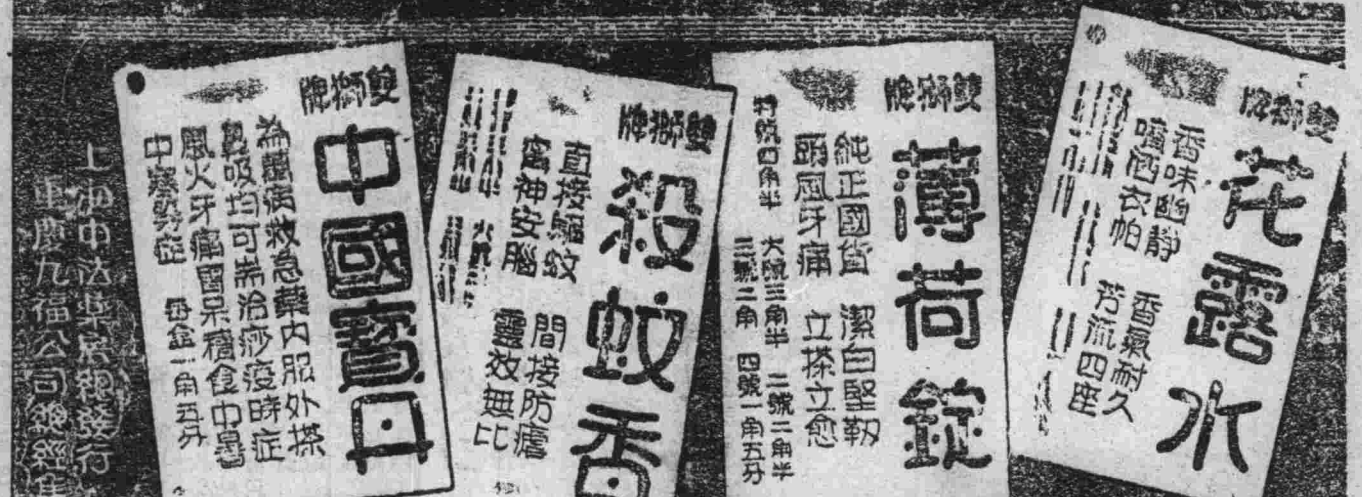 雙獅牌
花露水
香味幽靜 香氣耐久
噴洒衣帕 芳流四座
雙獅牌
薄荷錠
純正國貨 潔白堅靱
頭風牙痛 立搽立愈
特號四角半 大號三角半 二號二角半
三號二角 四號一角五分
雙獅牌
殺蚊香
直接驅蚊 間接防瘧
寗神安腦 靈效無比
雙獅牌
中國寶丹
為靈病救急藥內服外搽
鼻吸均可耑治痧疫時症
風火牙痛胃呆積食中暑
中寒等症 每盒一角五分
上海中法藥房總發行
重慶九福公司總經售